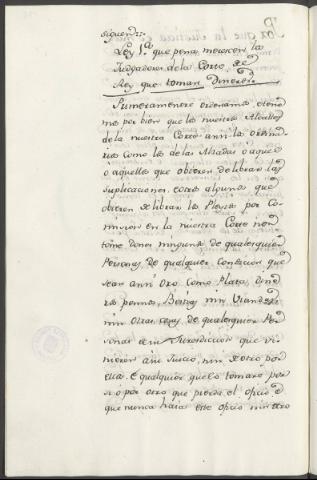 siguentes
Ley 1ª que pena merescen los
Judgadores de la Corte del
Rey que toman Dineros
Primeramente ordenamos e tene
mos por bien que los nuestros Alcalles
de la nuestra Corte ansi los ordina
rios como los de las Alzadas ó aquel
ó aquellos que obieren de librar las
suplicaciones e otros algunos que
obieren de librar los Pleytos por Co
mision en la nuestra Corte non
tome dones ningunos de qualesquier
Personas de qualquier Condicion que
sean ansi Oro como Plata, dine
ros pennos, Bestias nin Viandas
nin otras cosas de qualesquier Per
sonas de su Jurisdiccion que vi
nieren á su Juicio, nin de otro por
ellos. E qualquier que lo tomare por
si o por otro que pierda el oficio é
que nunca haia este oficio nin otro